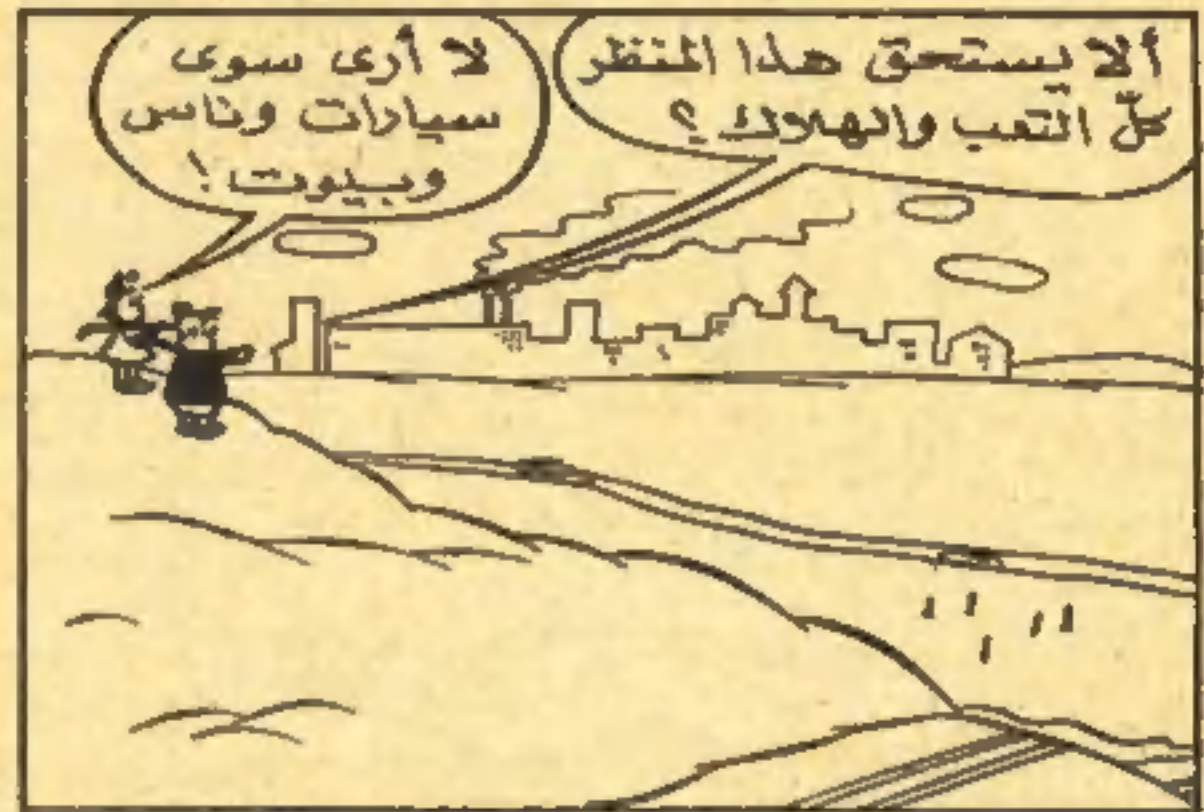 ألا يستحق هذا المنظر
كلّ التعب والهلاك؟
لا أرى سوى
سيارات وناس
وبيوت!